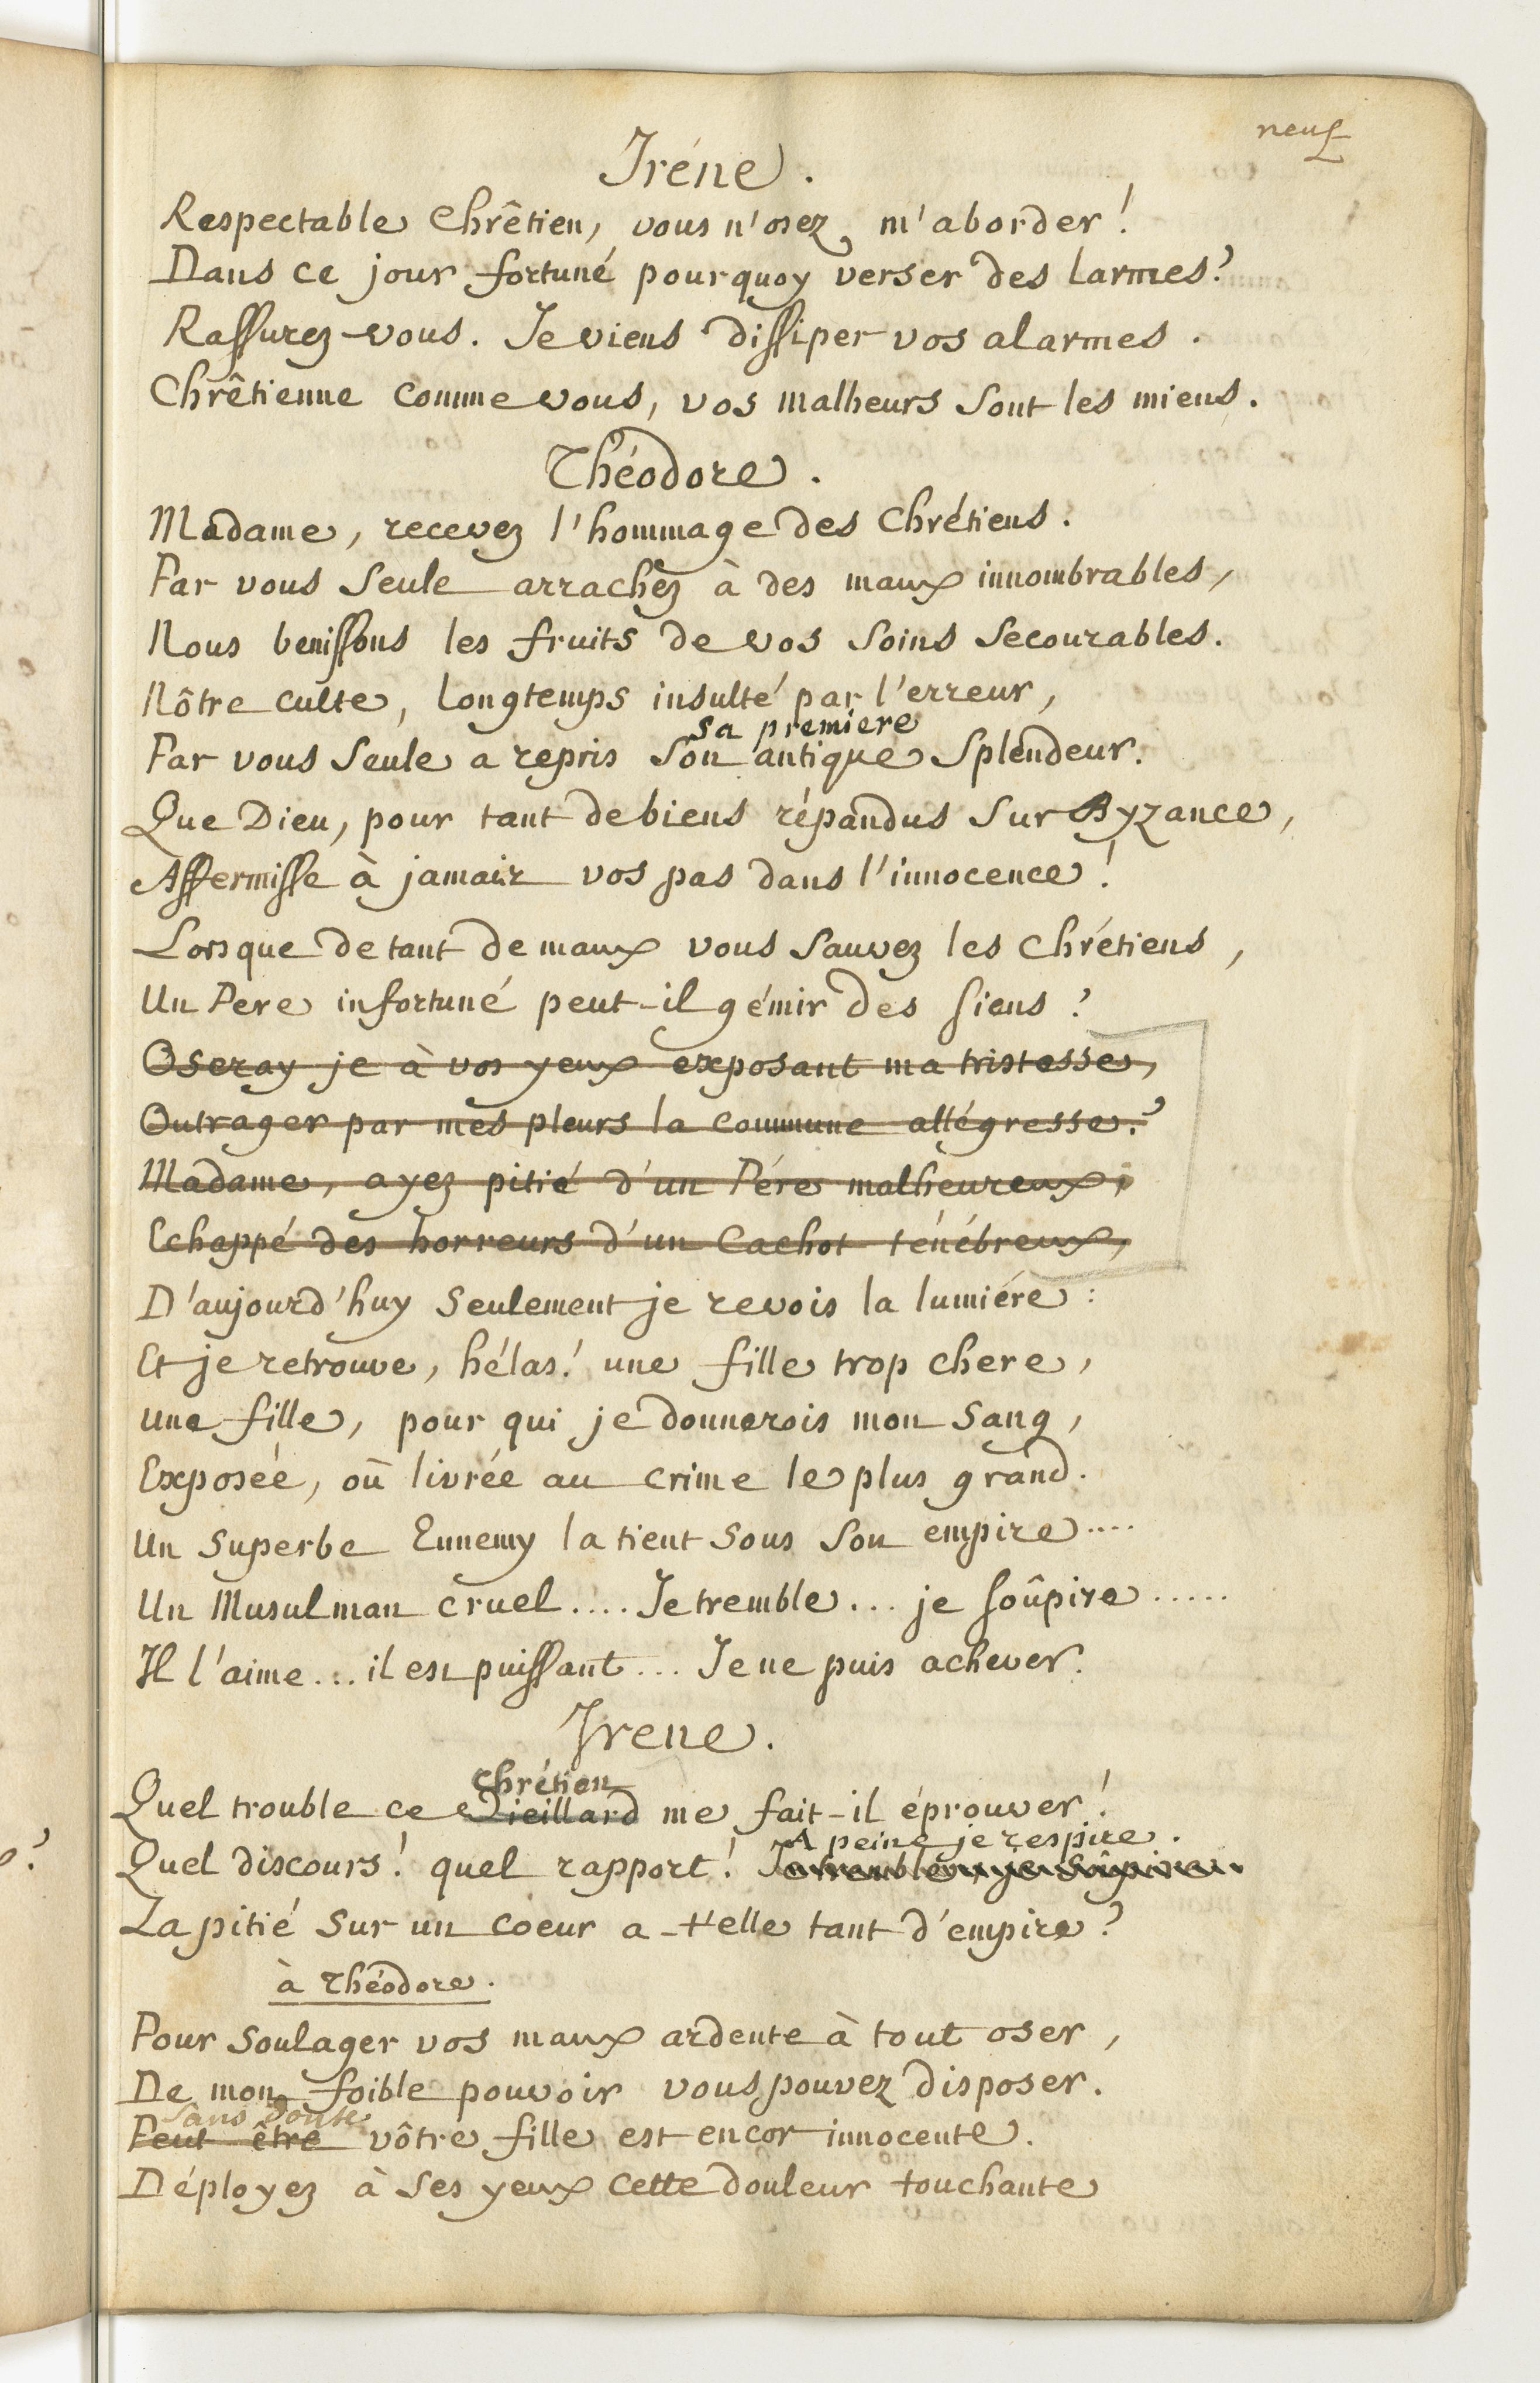 neuf
Iréne.
Respectable Chrêtien, vous n'osez m'aborder!
Dans ce jour fortuné pourquoy verser des larmes?
Rassurez-vous. Je viens dissiper vos alarmes.
Chrêtienne comme vous, vos malheurs sont les miens.
Théodore.
Madame, recevez l'hommage des Chrétiens.
Par vous seule arrachez à des maux innombrables,
Nous benissons les fruits de vos soins secourables.
Nôtre culte, longtemps insulté par l'erreur,
sa premiere
Par vous seule a repris son antique splendeur.
Que Dieu, pour tant de biens répandus sur Byzance,
Affermisse à jamais vos pas dans l'innocence!
Lorsque de tant de maux vous sauvez les Chrétiens,
Un Pere infortuné peut-il gémir des siens?
Oseray je à vos yeux exposant ma tristesse,
Outrager par mes pleurs la commune allégresse?
Madame, ayez pitié d'un Pére malheureux;
Echappé des horreurs d'un Cachot ténébreux,
D'aujourd'huy seulement je revois la lumiére:
Et je retrouve, hélas! une fille trop chere,
une fille, pour qui je donnerois mon sang,
Exposée, où livrée au crime le plus grand.
Un superbe Ennemy la tient sous son empire....
Un Musulman cruel.... Je tremble... je soûpire......
Il l'aime... il est puissant... Je ne puis achever.
Irene.
Chrétien
Quel trouble ce Vieillard me fait-il éprouver!
A peine je respire.
Quel discours! quel rapport! Je tremble, je soûpire.
La pitié sur un coeur a-t'elle tant d'empire?
à Théodore.
Pour soulager vos maux ardente à tout oser,
De mon foible pouvoir vous pouvez disposer.
Sans doute
Peut être vôtre fille est encor innocente.
Déployez à ses yeux cette douleur touchante